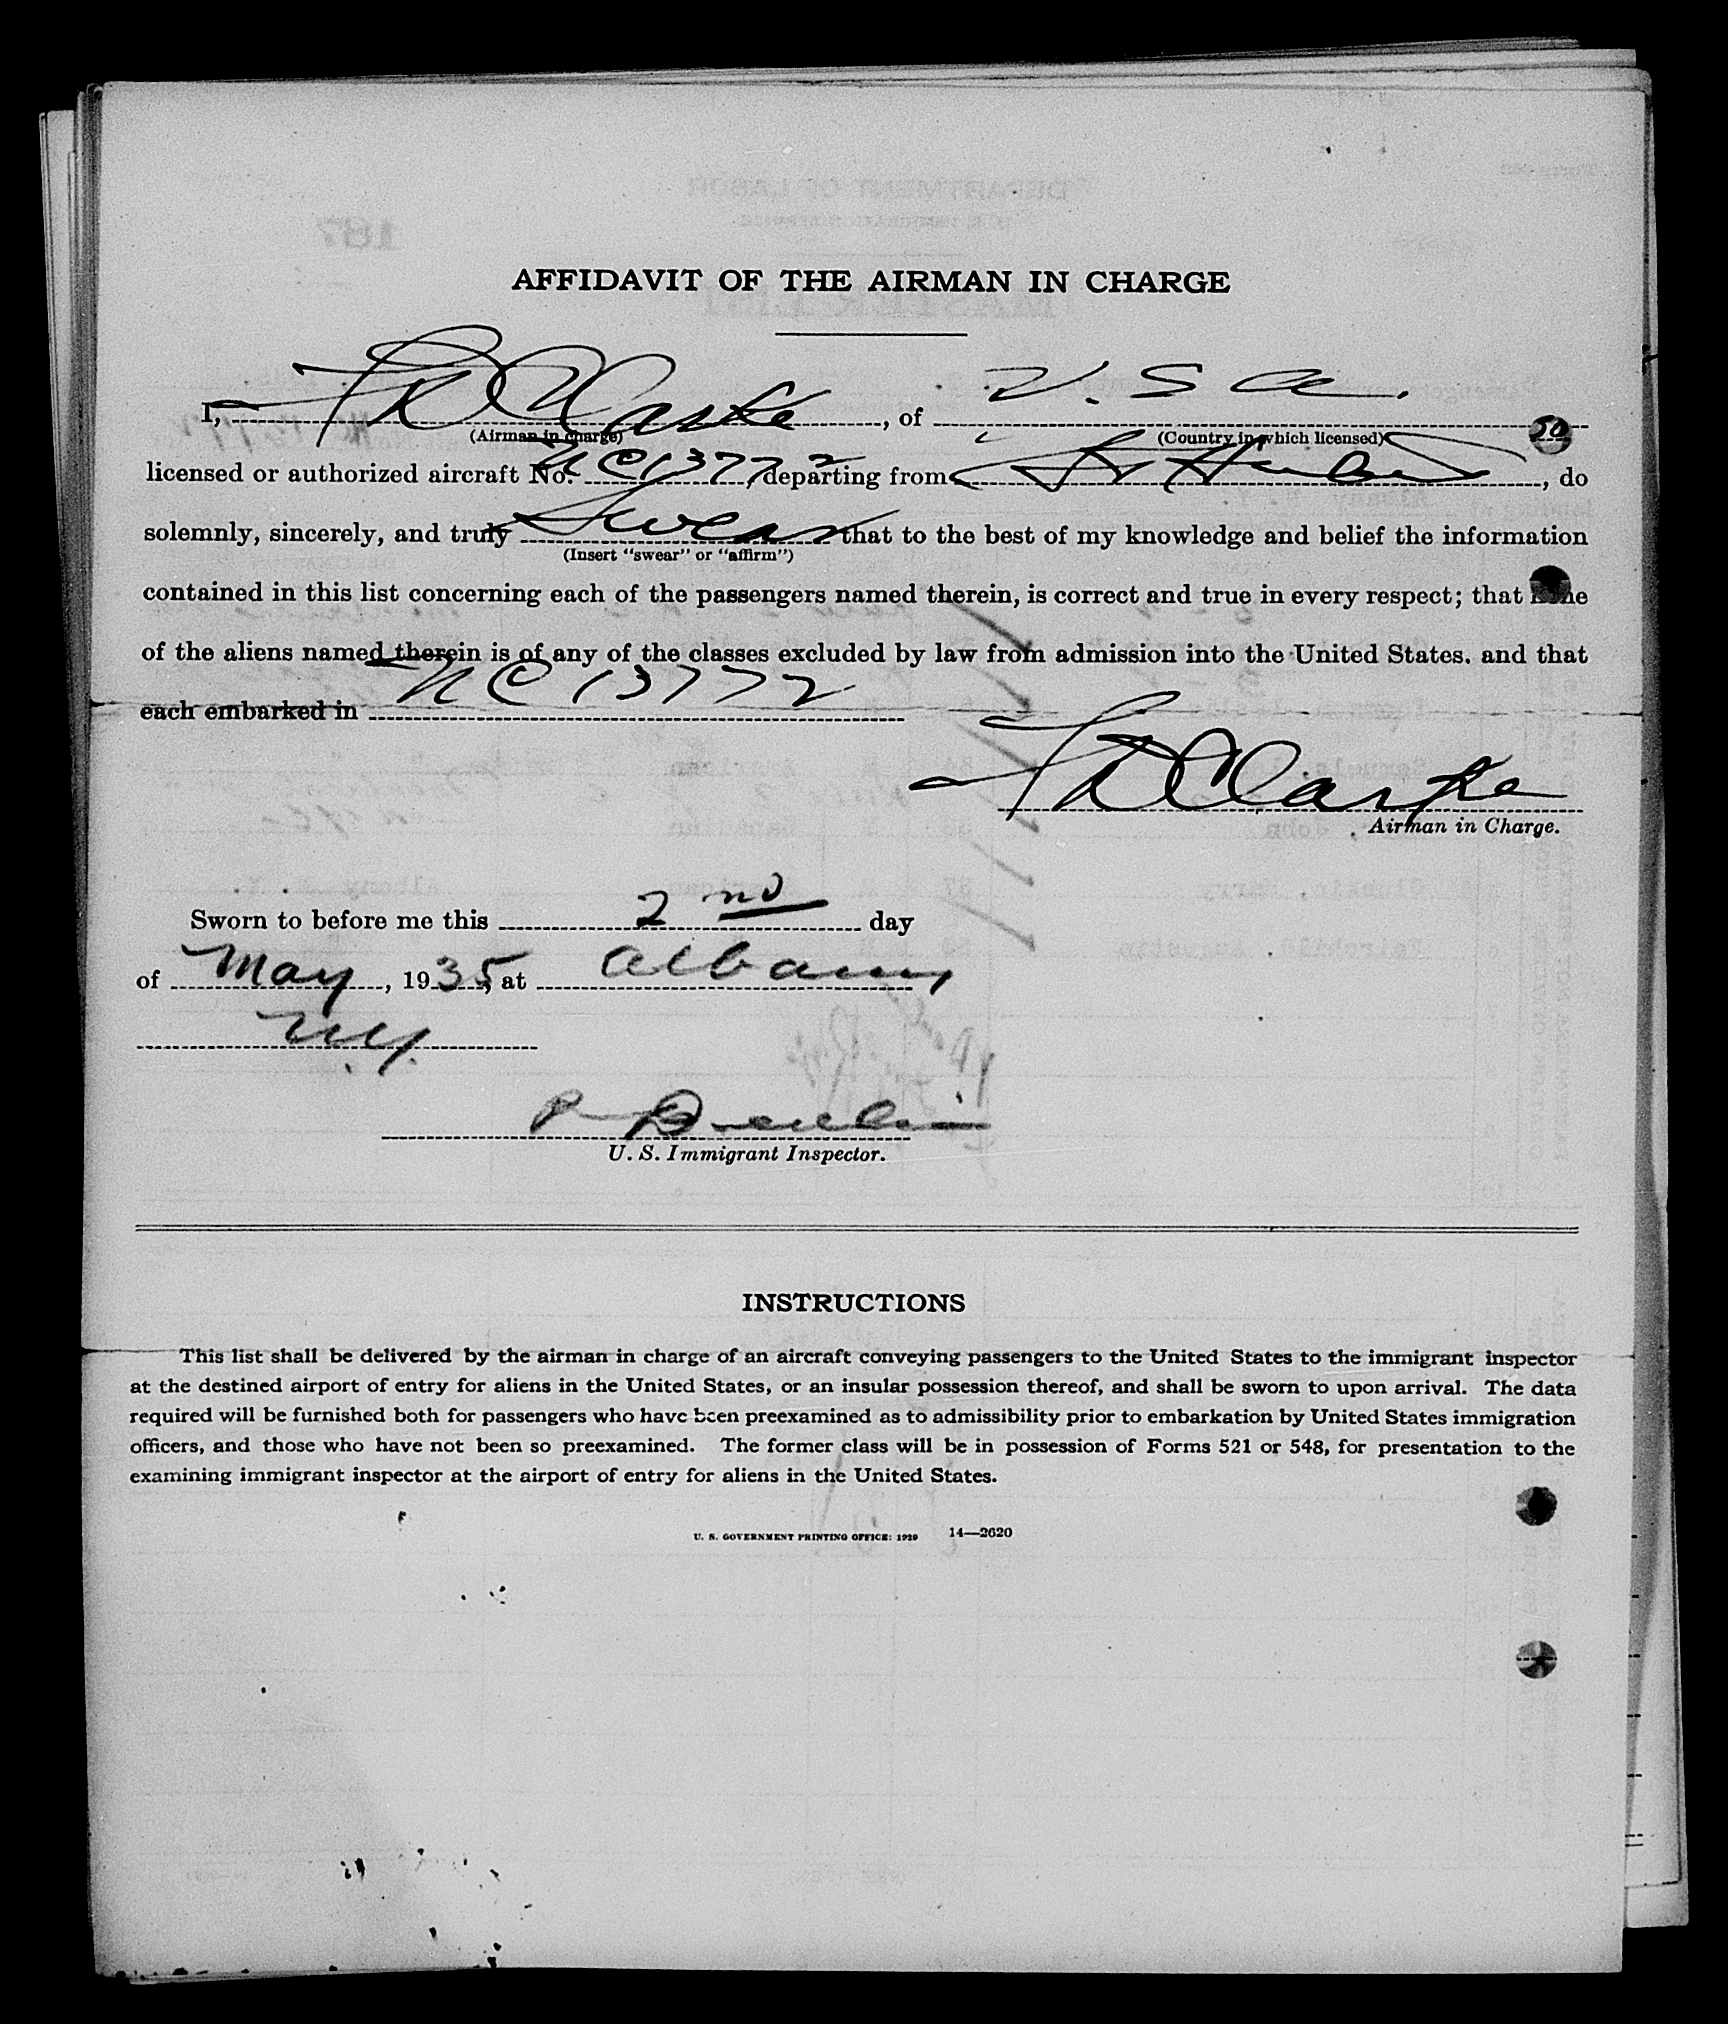 AFFIDAVIT OF THE AIRMAN IN CHARGE
I, Clarke, of U.S.A.
(Airman in charge) (Country in which licensed)
licensed or authorized aircraft No. NC13772, departing from St. Hubert, do
solemnly, sincerely, and truly swear that to the best of my knowledge and belief the information
(Insert "swear" or "affirm")
contained in this list concerning each of the passengers named therein, is correct and true in every respect; that none
of the aliens named therein is of any of the classes excluded by law from admission into the United States. and that
each embarked in NC13772
Clarke
Airman in Charge.
Sworn to before me this 2nd day
of May, 1935, at Albany
N.Y.
U. S. Immigrant Inspector.
INSTRUCTIONS
This list shall be delivered by the airman in charge of an aircraft conveying passengers to the United States to the immigrant inspector
at the destined airport of entry for aliens in the United States, or an insular possession thereof, and shall be sworn to upon arrival. The data
required will be furnished both for passengers who have been preexamined as to admissibility prior to embarkation by United States immigration
officers, and those who have not been so preexamined. The former class will be in possession of Forms 521 or 548, for presentation to the
examining immigrant inspector at the airport of entry for aliens in the United States.
U. S. GOVERNMENT PRINTING OFFICE: 1929 14—2620